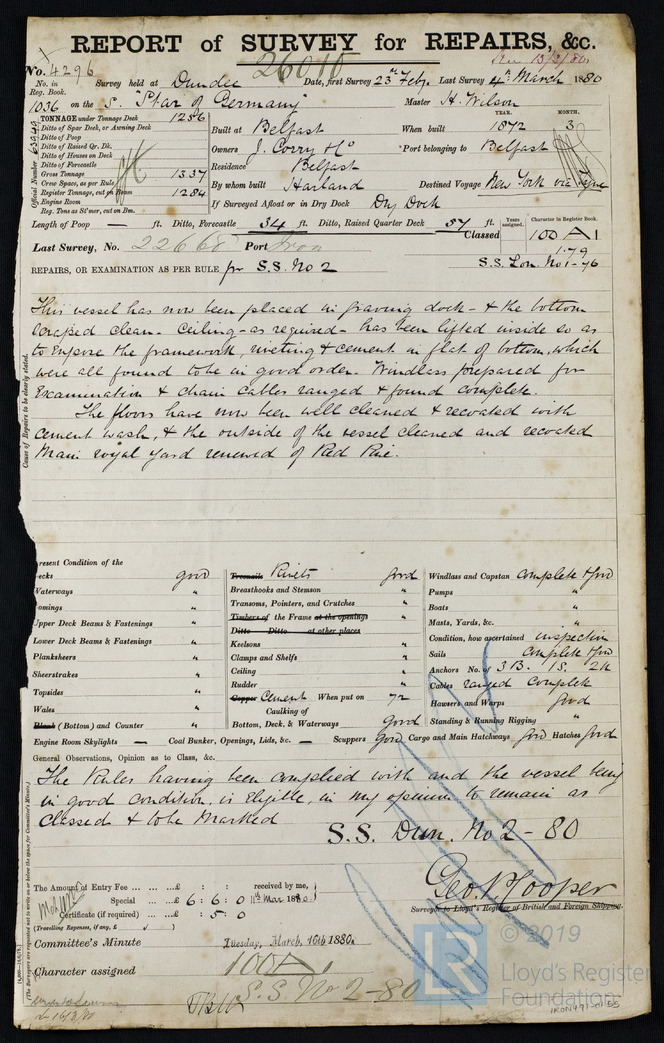 REPORT of SURVEY for REPAIRS, &c.
26010
No. 4296 Survey held at Dundee Date, first Survey 23rd Feby. Last Survey 4th March 1880
No. in Reg. Book.
1036 on the S. Star of Germany Master H. Wilson
TONNAGE under Tonnage Deck 1256
Ditto of Spar Deck, or Awning Deck
Ditto of Poop
Ditto of Raised Qr. Dk.
Ditto of Houses on Deck
Ditto of Forecastle
Gross Tonnage 1337
Crew Space, as per Rule
Register Tonnage, cut on Beam 1284
Engine Room
Reg. Tons as St'mer, cut on Bm.
Official Number 63949
Built at Belfast When built YEAR. 1872 MONTH. 3
Owners J. Corry & Co Port belonging to Belfast
Residence Belfast
By whom built Harland Destined Voyage New York via Tyne
If Surveyed Afloat or in Dry Dock Dry Dock
Length of Poop — ft. Ditto, Forecastle 34 ft. Ditto, Raised Quarter Deck 57 ft.
Years assigned. Character in Register Book.
Classed 100 A 1
1.79
Last Survey, No. 22668 Port Iron
S.S. Lon. No 1-76
REPAIRS, OR EXAMINATION AS PER RULE for S.S. No 2
This vessel has now been placed in graving dock - & the bottom
scraped clean - Ceiling - as required - has been lifted inside so as
to expose the framework, riveting & cement in flat of bottom, which
were all found to be in good order. Windlass prepared for
Examination & chain cables ranged & found complete.
The floors have now been well cleaned & recoated with
cement wash, & the outside of the vessel cleaned and recoated
Main royal yard renewed of Red Pine.
Cause of Repairs to be clearly stated.
Present Condition of the
Decks good
Waterways "
Comings "
Upper Deck Beams & Fastenings "
Lower Deck Beams & Fastenings "
Planksheers "
Sheerstrakes "
Topsides "
Wales "
Blank (Bottom) and Counter "
Engine Room Skylights — Coal Bunker, Openings, Lids, &c. — Scuppers Good Cargo and Main Hatchways good Hatches Good
Treenails Rivets good
Breasthooks and Stemson "
Transoms, Pointers, and Crutches "
Timbers of the Frame at the openings "
Ditto Ditto at other places
Keelsons "
Clamps and Shelfs "
Ceiling "
Rudder "
Copper Cement When put on 72
Caulking of
Bottom, Deck, & Waterways Good
Windlass and Capstan complete & good
Pumps "
Boats "
Masts, Yards, &c. "
Condition, how ascertained inspection
Sails complete & good
Anchors No. of 3 B. 1 S. 2 K
Cables ranged complete
Hawsers and Warps Good
Standing & Running Rigging "
General Observations, Opinion as to Class, &c.
The Rules having been complied with and the vessel being
in good condition, is Eligible, in my opinion to remain as
Classed & to be marked
S.S. Dun. No 2 - 80
The Amount of Entry Fee ... ... ...£ : : received by me,
Special ... ...£ 6 : 6 : 0 11th Mar 1880
Certificate (if required) ... : 5 : 0
(Travelling Expenses, if any, £ )
Geo. P. Hooper
Surveyor to Lloyd's Register of British and Foreign Shipping.
Committee's Minute Tuesday, March, 16th 1880.
Character assigned 100A1
S.S. No 2-80
© 2019
LR
Lloyd's Register
Foundation
IRON491-0155